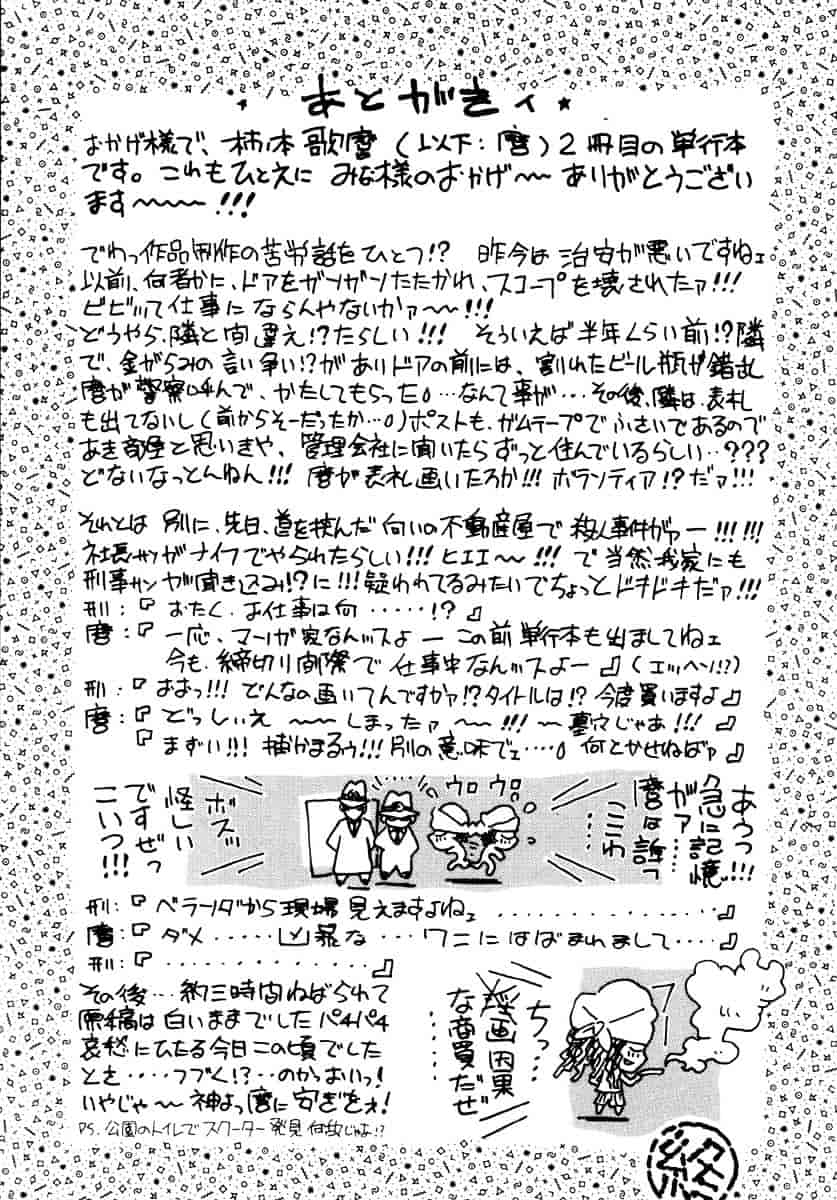 あとがきィ
おかげ様で、柿ノ本歌麿(以下:麿)2冊目の単行本
です。これもひとえに みな様のおかげ〜〜 ありがとうござい
ます〜〜〜!!!
でわっ作品制作の苦労話をひとつ!? 昨今は 治安が悪いですねェ
以前、何者かに、ドアをガンガンたたかれ、スコープを壊されたァ!!!
ビビッて仕事に ならんやないかァ〜〜!!!
どうやら、隣と間違え!?たらしい!!! そういえば半年くらい前!?隣
で、金がらみの言い争い!?がありドアの前には、割れたビール瓶が錯乱
麿が警察呼んで、かたしてもらった…なんて事が…その後、隣は、表札
も出てないし(前からそーだったか…)ポストも、ガムテープでふさいであるので
あき部屋と思いきや、管理会社に聞いたらずっと住んでいるらしい…???
どないなっとんねん!!! 麿が表札画いたろか!!! ボランティア!?だァ!!!
それとは 別に、先日、道を挟んだ向いの不動産屋で 殺人事件がァー!!!!!!
社長サンがナイフでやられたらしい!!! ヒエエ〜!!! で当然我家にも
刑事サンが聞き込み!?に!!!疑われてるみたいでちょっとドキドキだァ!!!
刑:『 おたく、お仕事は何……!?』
麿:『 一応、マンガ家なんッスよー この前 単行本も出ましてねェ
今も、締切り間際で 仕事中なんッスよー 』(エッヘン!?)
刑:『 おおっ!!! どんなの画いてんですかァ!?タイトルは!? 今度買いますよ』
麿:『 どっしぃえ 〜〜〜 しまったァ 〜〜!!! 〜 墓穴じゃあ!!! 』
『 まずい!!! 捕かまるゥ!!! 別の意味でェ…… 何とかせねばァ 』
あうっ!!!
急に記憶
がァ……
麿は誰っ
ここわ
……
ウロウロ
ボスッ
怪しい
ですぜっ
こいつ!!!
刑:『 ベランダから現場見えますよねェ ………………』
麿:『 ダメ……凶暴な…ワニにはばまれまして……』
刑:『 ………………』
その後…約三時間ねばられて
原稿は白いままでしたパチパチ
哀愁にひたる今日この頃でした
とさ……つづく!?…のかっおいっ!
いやじゃ〜 神よっ麿に安ぎをぇ!
PS. 公園のトイレで スクーター 発見 何故じゃよ!?
ちっ…
淫画因果
な商買だぜ
……
フッ